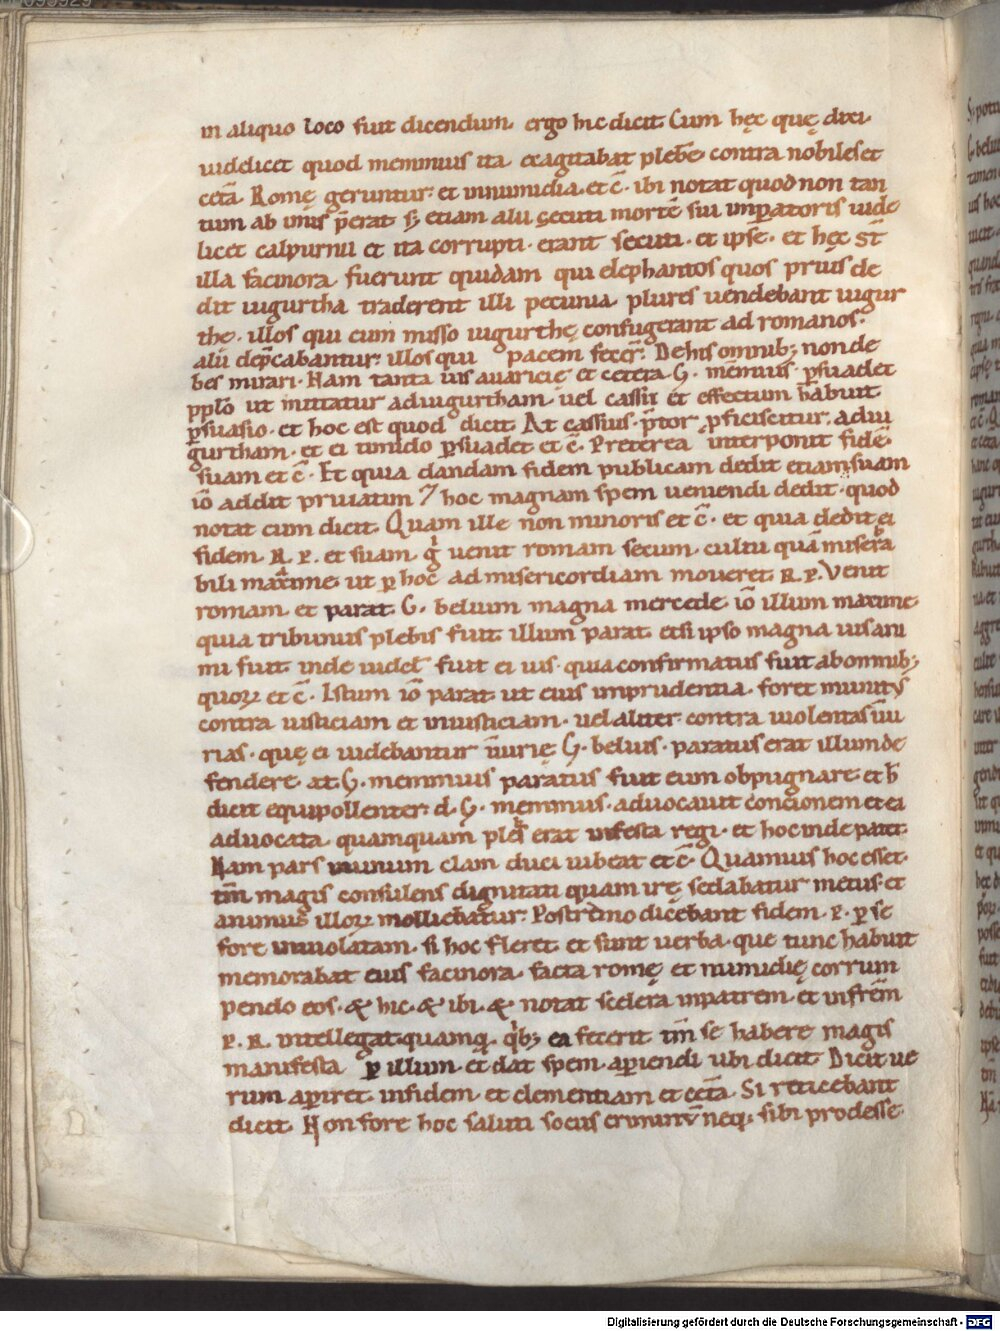 in aliquo loco fuit dicendum. ergo hic dicit Cum hęc quę dixi.
uidelicet quod memmius ita exagitabat plebē contra nobiles et
cetā. Romę geruntur. et in numidia. et c̄. ibi notat quod non tan
tum ab unis p̄erat s; etiam alii secuti mortē sui imꝑatoris uide
licet calpurnii et ita corrupti. erant secuti. et ipse. et hęc st̄
illa facinora fuerunt quidam qui elephantos quos prius de
dit iugurtha traderent illi pecunia plures uendebant iugur
thę. illos qui cum misso iugurthę confugerant ad romanos.
alii dep̄cabantur. illos qui pacem fecer̄. De his omnib; non de
bes mirari. Nam tanta uis auaricię et cetera G. mēmius ꝑsuadet
pplō ut mittatur ad iugurtham. uel cassii et effectum habuit
ꝑsuasio. et hoc est quod dicit At cassius. p̄tor ꝓficiscitur. ad iu
gurtham. et ei timido ꝑsuadet et c̄. Preterea interponit fidē
suam et c̄. Et quia dandam fidem publicam dedit etiam suam
iō addit priuatim ⁊ hoc magnam spem ueniendi dedit. quod
notat cum dicit. Quam ille non minoris et c̄. et quia dedit ei
fidem. R. P. et suam. gͥ uenit romam secum. cultu quā misera
bili maxime ut ꝑ hoc ad misericordiam moueret. R. P. Venit
romam et parat G. belium magna mercede iō illum maxime
quia tribunus plebis fuit illum parat. etsi ipso magna uis ani
mi fuit. inde uidel̄ fuit ei uis. quia confirmatus fuit ab omnib;
quoꝝ et c̄. Istum iō parat ut eius imprudentia foret munitus
contra iusticiam et iniusticiam. uel aliter. contra uiolentas iniu
rias. quę ei uidebantur iniurię G. belius. paratus erat illum de
fendere at G. memmius paratus fuit eum obpugnare et h̄
dicit equipollenter. d. G. memmius. aduocauit concionem et ei
aduocata. quamquam plebs erat infesta regi. et hoc inde patet.
Nam pars in uinum clam duci iubeat et c̄. Quamuis hoc esset.
tm̄ magis consulens dignitati quam irę sedabatur metus. et
animus illoꝝ molliebatur. Postremo dicebant fidem. P. ꝑ se
fore inuiolatam. si hoc fieret et sunt uerba. que tunc habuit
memorabat eius facinora. facta romę et numidię corrum
pendo eos. & hic. & ibi. & notat scelera in patrem. et in frēm
P. R. intellegat. quamq. qͥb; ea fecerit tm̄ se habere magis
manifesta ꝑ illum. et dat spem aꝑiendi ubi dicit Dicit ue
rum aꝑiret. in fidem et clementiam et cetā. Si reticebant
dicit. Non fore hoc saluti sociis neq; sibi prodesse